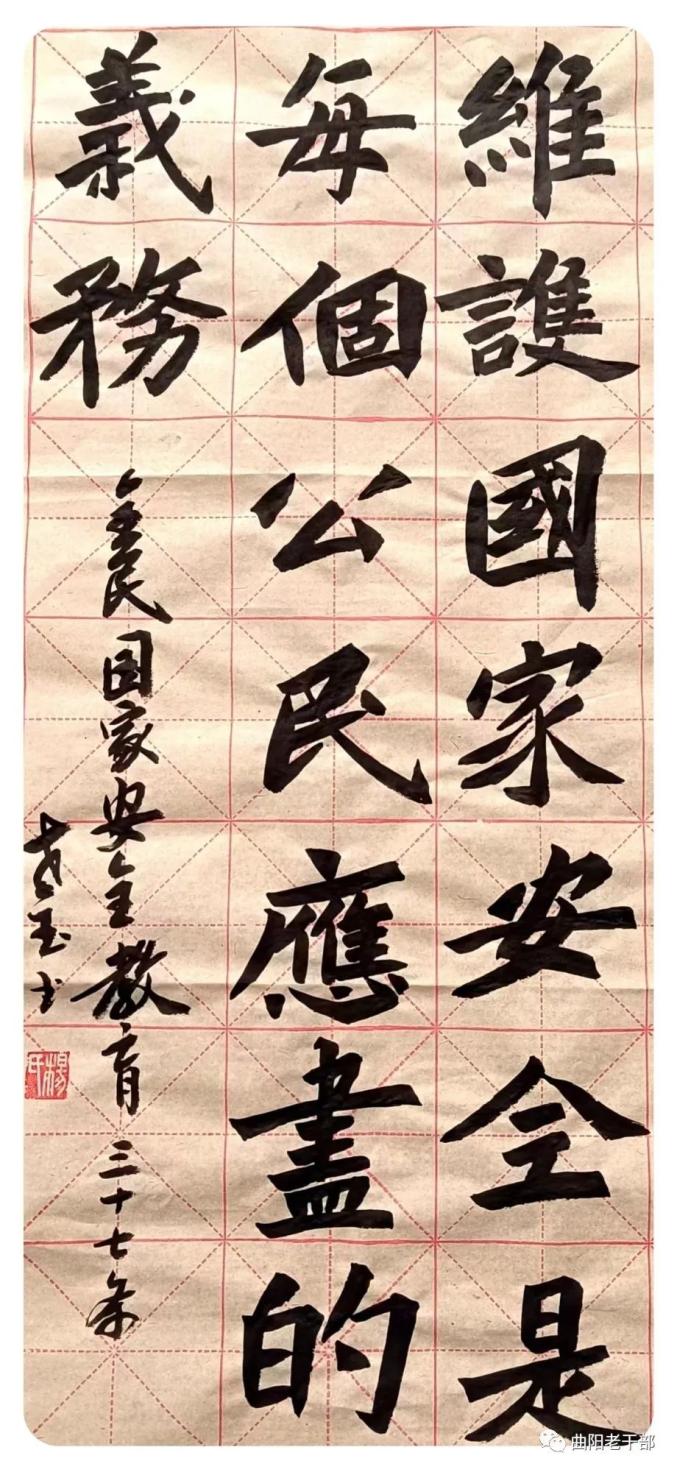 維護國家安全是
每個公民應盡的
義務
全民國家安全教育三十七条
玉书
楊氏
曲阳老干部